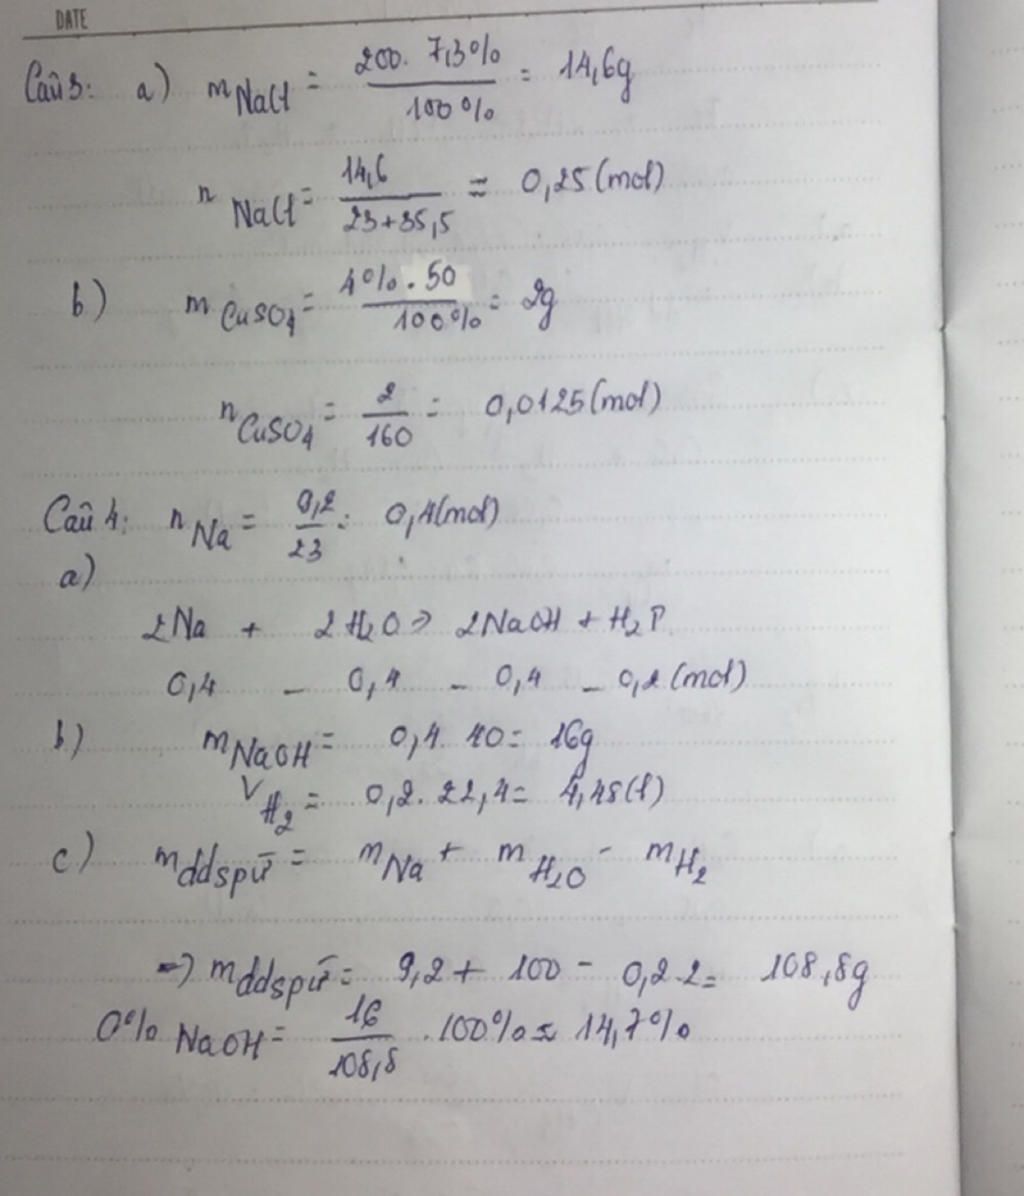 DATE
Câu 3: a) mNaCl = 200. 7,3% / 100% = 14,6g
nNaCl = 14,6 / 23+35,5 ≈ 0,25 (mol)
b) mCuSO4 = 4%. 50 / 100% = 2g
nCuSO4 = 2 / 160 = 0,0125 (mol)
Câu 4: nNa = 9,2 / 23 = 0,4 (mol)
a)
2Na + 2H2O → 2NaOH + H2↑
0,4 - 0,4 - 0,4 - 0,2 (mol)
b) mNaOH = 0,4. 40 = 16g
VH2 = 0,2. 22,4 = 4,48 (l)
c) mddspứ = mNa + mH2O - mH2
=> mddspứ = 9,2 + 100 - 0,2.2 = 108,8g
C% NaOH = 16 / 108,8 .100% ≈ 14,7%